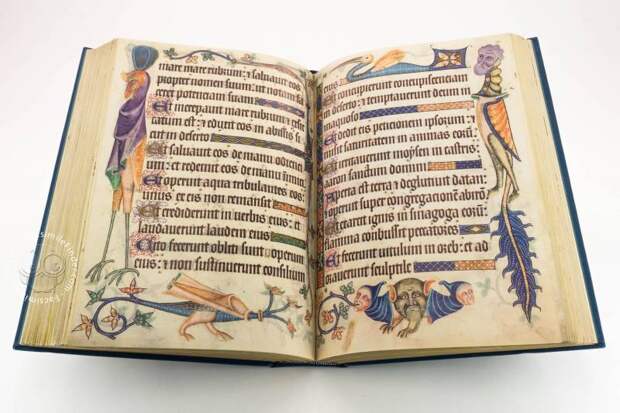 mare mare rubrum: ⁊ saluauit eos
propter nomen suum: ut notam fa
ceret potentiam suam
Et increpauit mare rubrum: ⁊ exsic
catum est: ⁊ eduxit eos in abissis si
cut in deserto
Et saluauit eos de manu odientium
et redemit eos de manu inimici
Et operuit aqua tribulantes eos:
unus ex eis non remansit
Et crediderunt in uerbis eius: et
laudauerunt laudem eius
Cito fecerunt obliti sunt operum
eius: ⁊ non sustinuerunt consilium
eius
Et concupierunt concupiscenciam
in deserto: ⁊ temptauerunt deum in
inaquoso
Et dedit eis peticionem ipsorum: et
saturitatem in animas eorum
Et irritauerunt moysen in castris
aaron sanctum domini
Aperta est terra ⁊ deglutiuit datan:
et operuit super congregacionem abiron
Et exarsit ignis in sinagoga eorum
flamma combussit peccatores
Et fecerunt uitulum in oreb: et ad
orauerunt sculptile